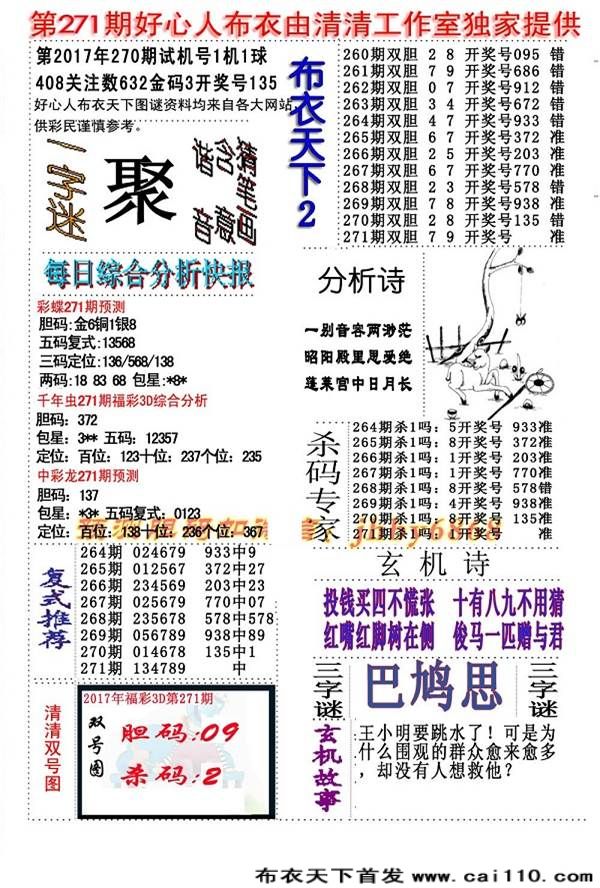 第271期好心人布衣由清清工作室独家提供
第2017年270期试机号1机1球
408关注数632金码3开奖号135
好心人布衣天下图谜资料均来自各大网站
供彩民谨慎参考。
一字迷
聚
谐音
含意
猜笔画
布衣天下2
260期双胆 2 8 开奖号095 错
261期双胆 7 9 开奖号686 错
262期双胆 0 7 开奖号912 错
263期双胆 3 4 开奖号672 错
264期双胆 4 7 开奖号933 错
265期双胆 6 7 开奖号372 准
266期双胆 2 5 开奖号203 准
267期双胆 6 7 开奖号770 准
268期双胆 2 3 开奖号578 错
269期双胆 7 8 开奖号938 准
270期双胆 2 8 开奖号135 错
271期双胆 7 9 开奖号 准
每日综合分析快报
彩蝶271期预测
胆码:金6铜1银8
五码复式:13568
三码定位:136/568/138
两码:18 83 68 包星:*8*
千年虫271期福彩3D综合分析
胆码: 372
包星: 3** 五码: 12357
定位: 百位: 123十位: 237个位: 235
中彩龙271期预测
胆码: 137
包星: *3* 五码复式: 0123
定位: 百位: 138十位: 236个位: 367
分析诗
一别音客两渺茫
昭阳殿里思爱绝
蓬莱宫中日月长
杀码专家
264期杀1吗: 5开奖号 933准
265期杀1吗: 8开奖号 372准
266期杀1吗: 1开奖号 203准
267期杀1吗: 1开奖号 770准
268期杀1吗: 8开奖号 578错
269期杀1吗: 4开奖号 938准
270期杀1吗: 8开奖号 135准
271期杀1吗: 1开奖号 准
复式推荐
264期 024679 933中9
265期 012567 372中27
266期 234569 203中23
267期 025679 770中07
268期 235678 578中578
269期 056789 938中89
270期 014678 135中1
271期 134789 中
玄机诗
投钱买四不慌张 十有八九不用猜
红嘴红脚树在侧 俊马一匹赠与君
三字谜
巴鸠思
三字谜
清清双号图
2017年福彩3D第271期
双号图
胆码:09
杀码:2
玄机故事
王小明要跳水了！可是为
什么围观的群众愈来愈多
，却没有人想救他？
布衣天下首发 www.cai110.com